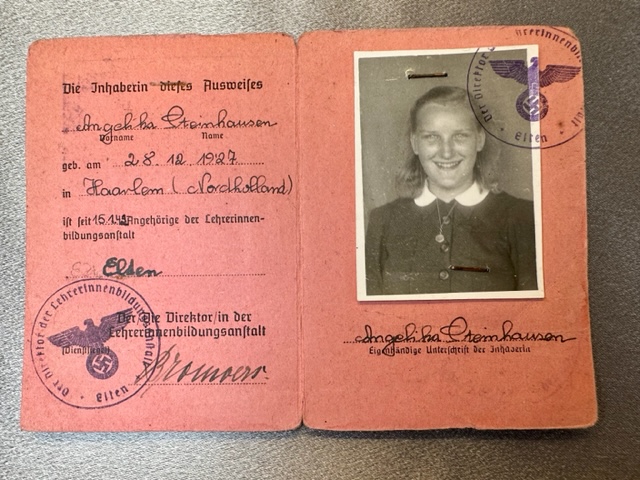 Die Inhaberin dieses Ausweises
Angelika Steinhausen
Vorname Name
geb. am 28.12.1927
in Haarlem (Nordholland)
ist seit 15.1.43 Angehörige der Lehrerinnen-
bildungsanstalt
Elten
Der/Die Direktor/in der
Lehrerinnenbildungsanstalt
(Dienstsiegel)
Der Direktor der Lehrerinnenbildungsanstalt
Elten
Der Direktor
Lehrerinnenbildungsanstalt
Elten
Angelika Steinhausen
Eigenhändige Unterschrift der Inhaberin